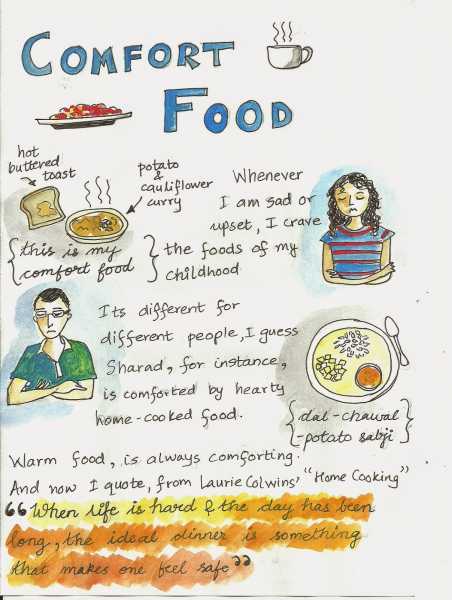 COMFORT
FOOD
hot
buttered
toast
potato
&
cauliflower
curry
{this is my
comfort food}
Whenever
I am sad or
upset, I crave
the foods of my
childhood
Its different for
different people, I guess
Sharad, for instance,
is comforted by hearty
home-cooked food.
{dal-chawal
-potato sabji}
Warm food, is always comforting.
And now I quote, from Laurie Colwins' "Home Cooking"
"When life is hard & the day has been
long, the ideal dinner is something
that makes one feel safe"